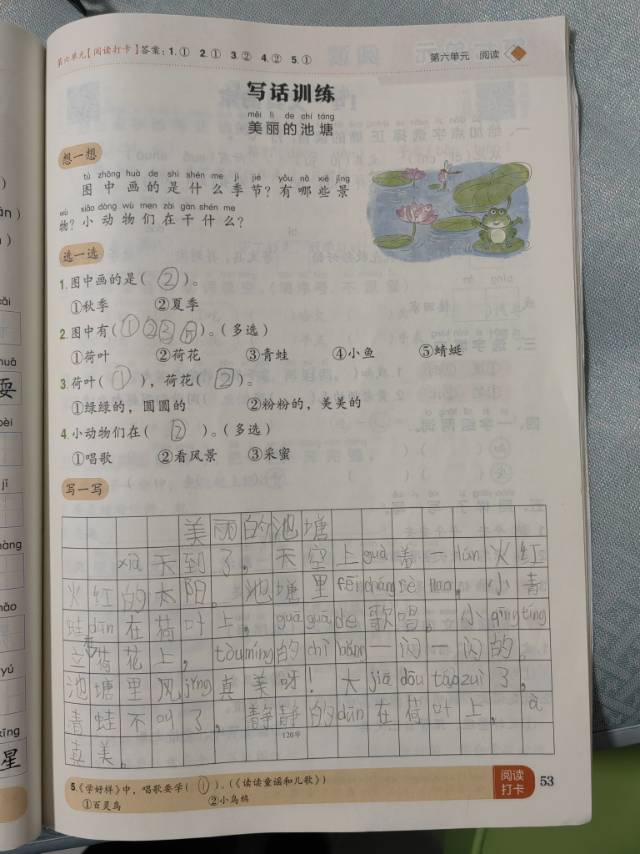 第六单元【阅读打卡】答案：1.① 2.① 3.② 4.② 5.①
第六单元 阅读
写话训练
měi lì de chí táng
美丽的池塘
想一想
tú zhōng huà de shì shén me jì jié yǒu nǎ xiē jǐng
图中画的是什么季节？有哪些景
wù xiǎo dòng wù men zài gàn shén me
物？小动物们在干什么？
选一选
1.图中画的是(②)。
①秋季 ②夏季
2.图中有(①②③⑤)。（多选）
①荷叶 ②荷花 ③青蛙 ④小鱼 ⑤蜻蜓
3.荷叶(①)，荷花(②)。
①绿绿的，圆圆的 ②粉粉的，美美的
4.小动物们在(②)。（多选）
①唱歌 ②看风景 ③采蜜
写一写
美丽的池塘
xià天到了，天空上guà着一lún火红
火红的太阳。池塘里fēi cháng rè nao。小青
蛙dūn在荷叶上，guā guā de歌唱。小qīng tíng
立荷花上，tòu míng的chì bǎng一闪一闪的，
池塘里风jǐng真美呀！大jiā dōu táo zuì了，
青蛙不叫了，静静的dūn在荷叶上，à
真美。
120字
5.《学好样》中，唱歌要学(①)。（《读读童谣和儿歌》）
①百灵鸟 ②小乌鸦
阅读
打卡
53
耍
星